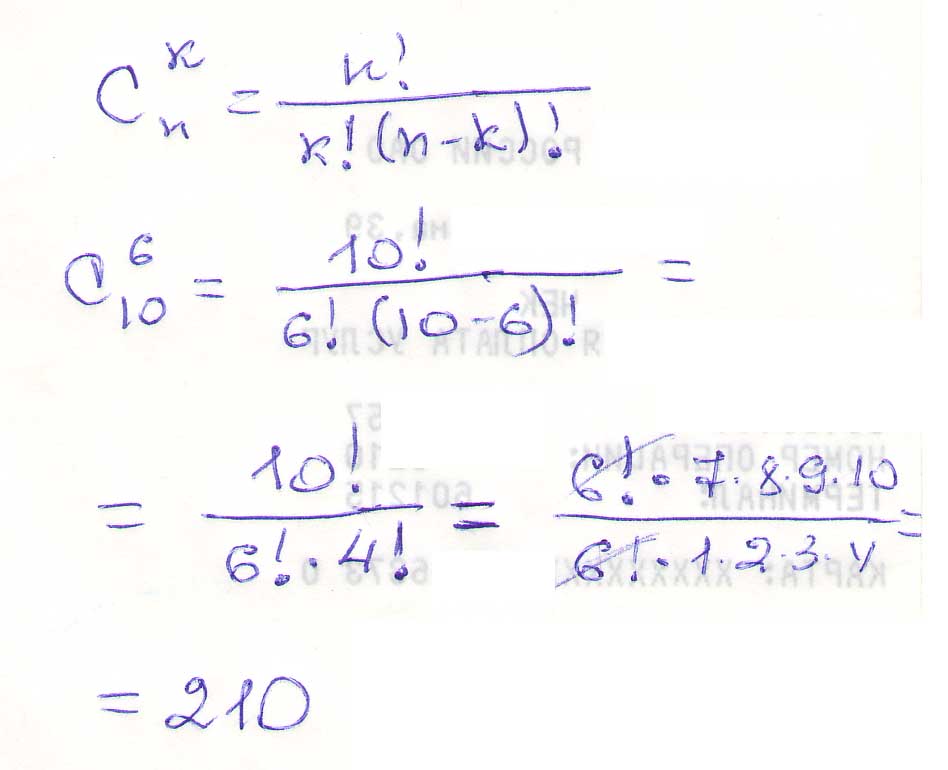 C_n^k = n! / k!(n-k)!
C_10^6 = 10! / 6!(10-6)! =
= 10! / 6!·4! = 6!·7·8·9·10 / 6!·1·2·3·4 =
= 210
РОССИИ ОАО
мо.39
ЧЕК
Я ОПЛАТА УСЛУГ
57
НОМЕР ОПЕРАЦИИ: 10
ТЕРМИНАЛ: 601215
КАРТА: ХХХХХХХХХ 6673 0